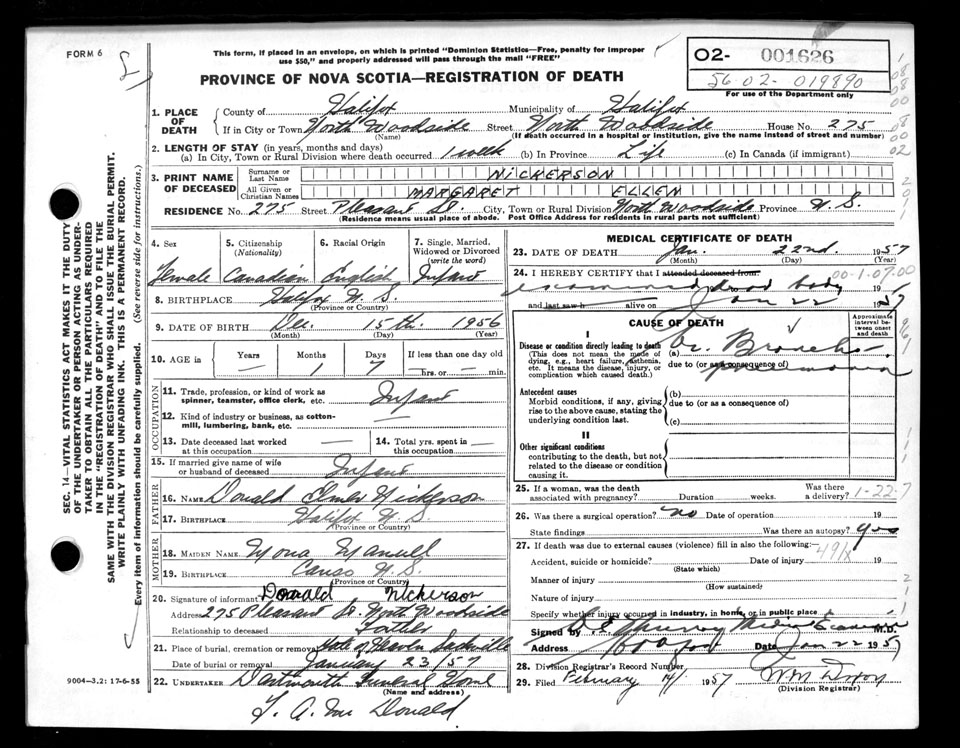 FORM 6
This form, if placed in an envelope, on which is printed "Dominion Statistics—Free, penalty for improper
use $50," and properly addressed will pass through the mail "FREE"
PROVINCE OF NOVA SCOTIA—REGISTRATION OF DEATH
02- 001626
56-02-019890
For use of the Department only
1. PLACE OF DEATH
County of Halifax Municipality of Halifax
If in City or Town North Woodside Street North Woodside House No. 275
(Name) (If death occurred in a hospital or institution, give the name instead of street and number)
2. LENGTH OF STAY (in years, months and days)
(a) In City, Town or Rural Division where death occurred 1 week (b) In Province Life (c) In Canada (if immigrant)
3. PRINT NAME OF DECEASED
Surname or Last Name NICKERSON
All Given or Christian Names MARGARET ELLEN
RESIDENCE No. 275 Street Pleasant St. City, Town or Rural Division North Woodside Province N.S.
(Residence means usual place of abode. Post Office Address for residents in rural parts not sufficient)
4. Sex
Female
5. Citizenship (Nationality)
Canadian
6. Racial Origin
English
7. Single, Married, Widowed or Divorced (write the word)
Infant
8. BIRTHPLACE Halifax N.S.
(Province or Country)
9. DATE OF BIRTH Dec. 15th. 1956
(Month) (Day) (Year)
10. AGE in
Years Months Days If less than one day old
— 1 7 — hrs. or — min.
OCCUPATION
11. Trade, profession, or kind of work as spinner, teamster, office clerk, etc. Infant
12. Kind of industry or business, as cotton-mill, lumbering, bank, etc. —
13. Date deceased last worked at this occupation —
14. Total yrs. spent in this occupation —
15. If married give name of wife or husband of deceased Infant
FATHER
16. NAME Donald Elmer Nickerson
17. BIRTHPLACE Halifax N.S.
(Province or Country)
MOTHER
18. MAIDEN NAME Mona
19. BIRTHPLACE Canso N.S.
(Province or Country)
20. Signature of informant Donald Nickerson
Address 275 Pleasant St. North Woodside
Relationship to deceased Father
21. Place of burial, cremation or removal Gate of Heaven Sackville
Date of burial or removal January 23/57
22. UNDERTAKER Dartmouth Funeral Home
(Name and address)
MEDICAL CERTIFICATE OF DEATH
23. DATE OF DEATH Jan. 22nd. 1957
(Month) (Day) (Year)
24. I HEREBY CERTIFY that I attended deceased from: 00-1-07.00
examined dead body 19
and last saw h alive on Jan 22 1957
CAUSE OF DEATH
Approximate interval between onset and death
I
Disease or condition directly leading to death
(This does not mean the mode of dying, e.g., heart failure, asthenia, etc. It means the disease, injury, or complication which caused death.)
(a) Broncho
due to (or as a consequence of) pneumonia
Antecedent causes
Morbid conditions, if any, giving rise to the above cause, stating the underlying condition last.
(b)
due to (or as a consequence of)
(c)
II
Other significant conditions
contributing to the death, but not related to the disease or condition causing it.
25. If a woman, was the death associated with pregnancy? Duration weeks. Was there a delivery? 1-22-7
26. Was there a surgical operation? no Date of operation 19
State findings Was there an autopsy? yes
27. If death was due to external causes (violence) fill in also the following: 491X
Accident, suicide or homicide? Date of injury 19
(State which)
Manner of injury
(How sustained)
Nature of injury
Specify whether injury occurred in industry, in home, or in public place
Signed by Medical Examiner M.D.
Address Date Jan 22 1957
28. Division Registrar's Record Number
29. Filed February 14/ 1957
(Division Registrar)
SEC. 14—VITAL STATISTICS ACT MAKES IT THE DUTY
OF THE UNDERTAKER OR PERSON ACTING AS UNDER-
TAKER TO OBTAIN ALL THE PARTICULARS REQUIRED
IN THE "REGISTRATION OF DEATH" AND TO FILE THE
SAME WITH THE DIVISION REGISTRAR WHO SHALL ISSUE THE BURIAL PERMIT.
WRITE PLAINLY WITH UNFADING INK. THIS IS A PERMANENT RECORD.
Every item of information should be carefully supplied. (See reverse side for instructions.)
9004-3.2: 17-6-55